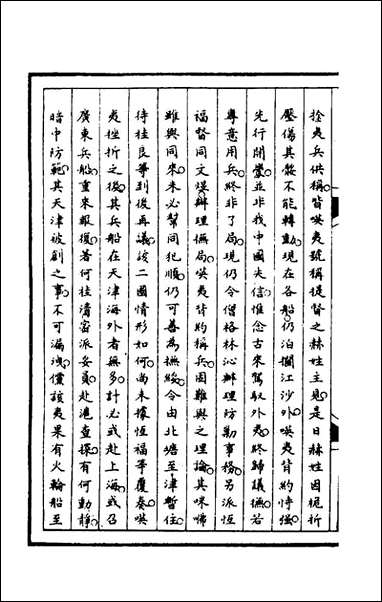 捡夷兵供稱皆㗸夷號稱提督之赫姓主見是日赫姓因桅折
壓傷其骽不能轉動現在各船仍泊攔江沙外㗸夷背約恃強
先行開釁並非我中國失信惟念古來駕馭外夷終歸議撫若
專意用兵終非了局現仍令僧格林沁辦理防勦事務另派恆
福督同文煜辦理撫局㗸夷背約稱兵固難與之理論其咪㖠
雖與同來未必幫同犯順仍可善為撫綏令由北塘至津暫住
待桂良等到後再議該二國情形如何尚未據恆福等覆奏㗸
夷挫折之後其兵船在天津海外者無多計必或赴上海或召
廣東兵船重來報復着何桂清密派妥員赴滬查探有何動靜
暗中防範其天津被創之事不可漏洩儻該夷果有火輪船至